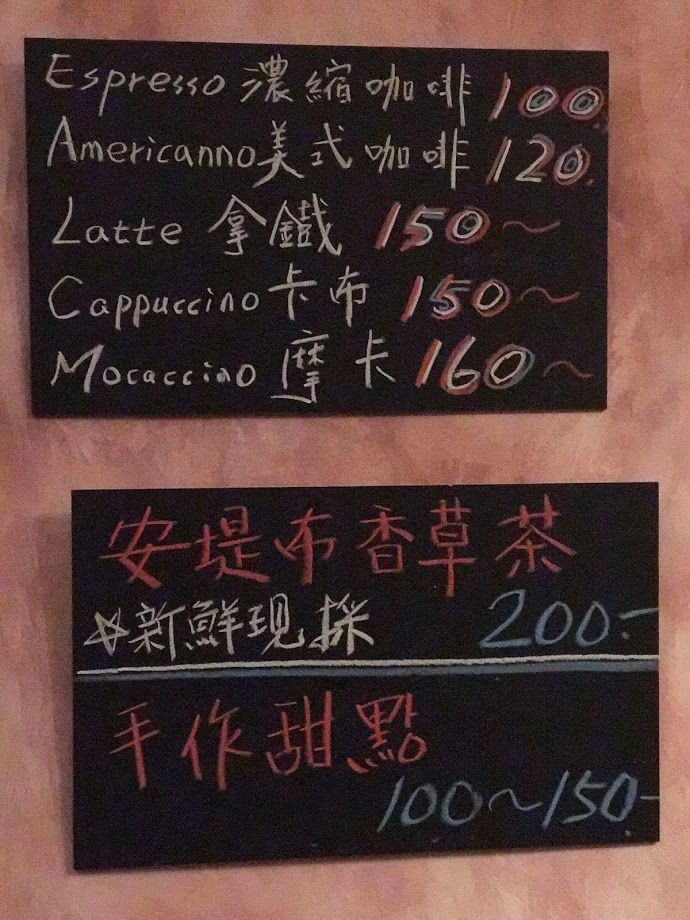 Espresso 濃縮咖啡 100.
Americanno美式咖啡 120.
Latte 拿鐵 150~
Cappuccino卡布 150~
Mocaccino 摩卡 160~
安堤布香草茶
☆新鮮現採 200.-
手作甜點
100~150-